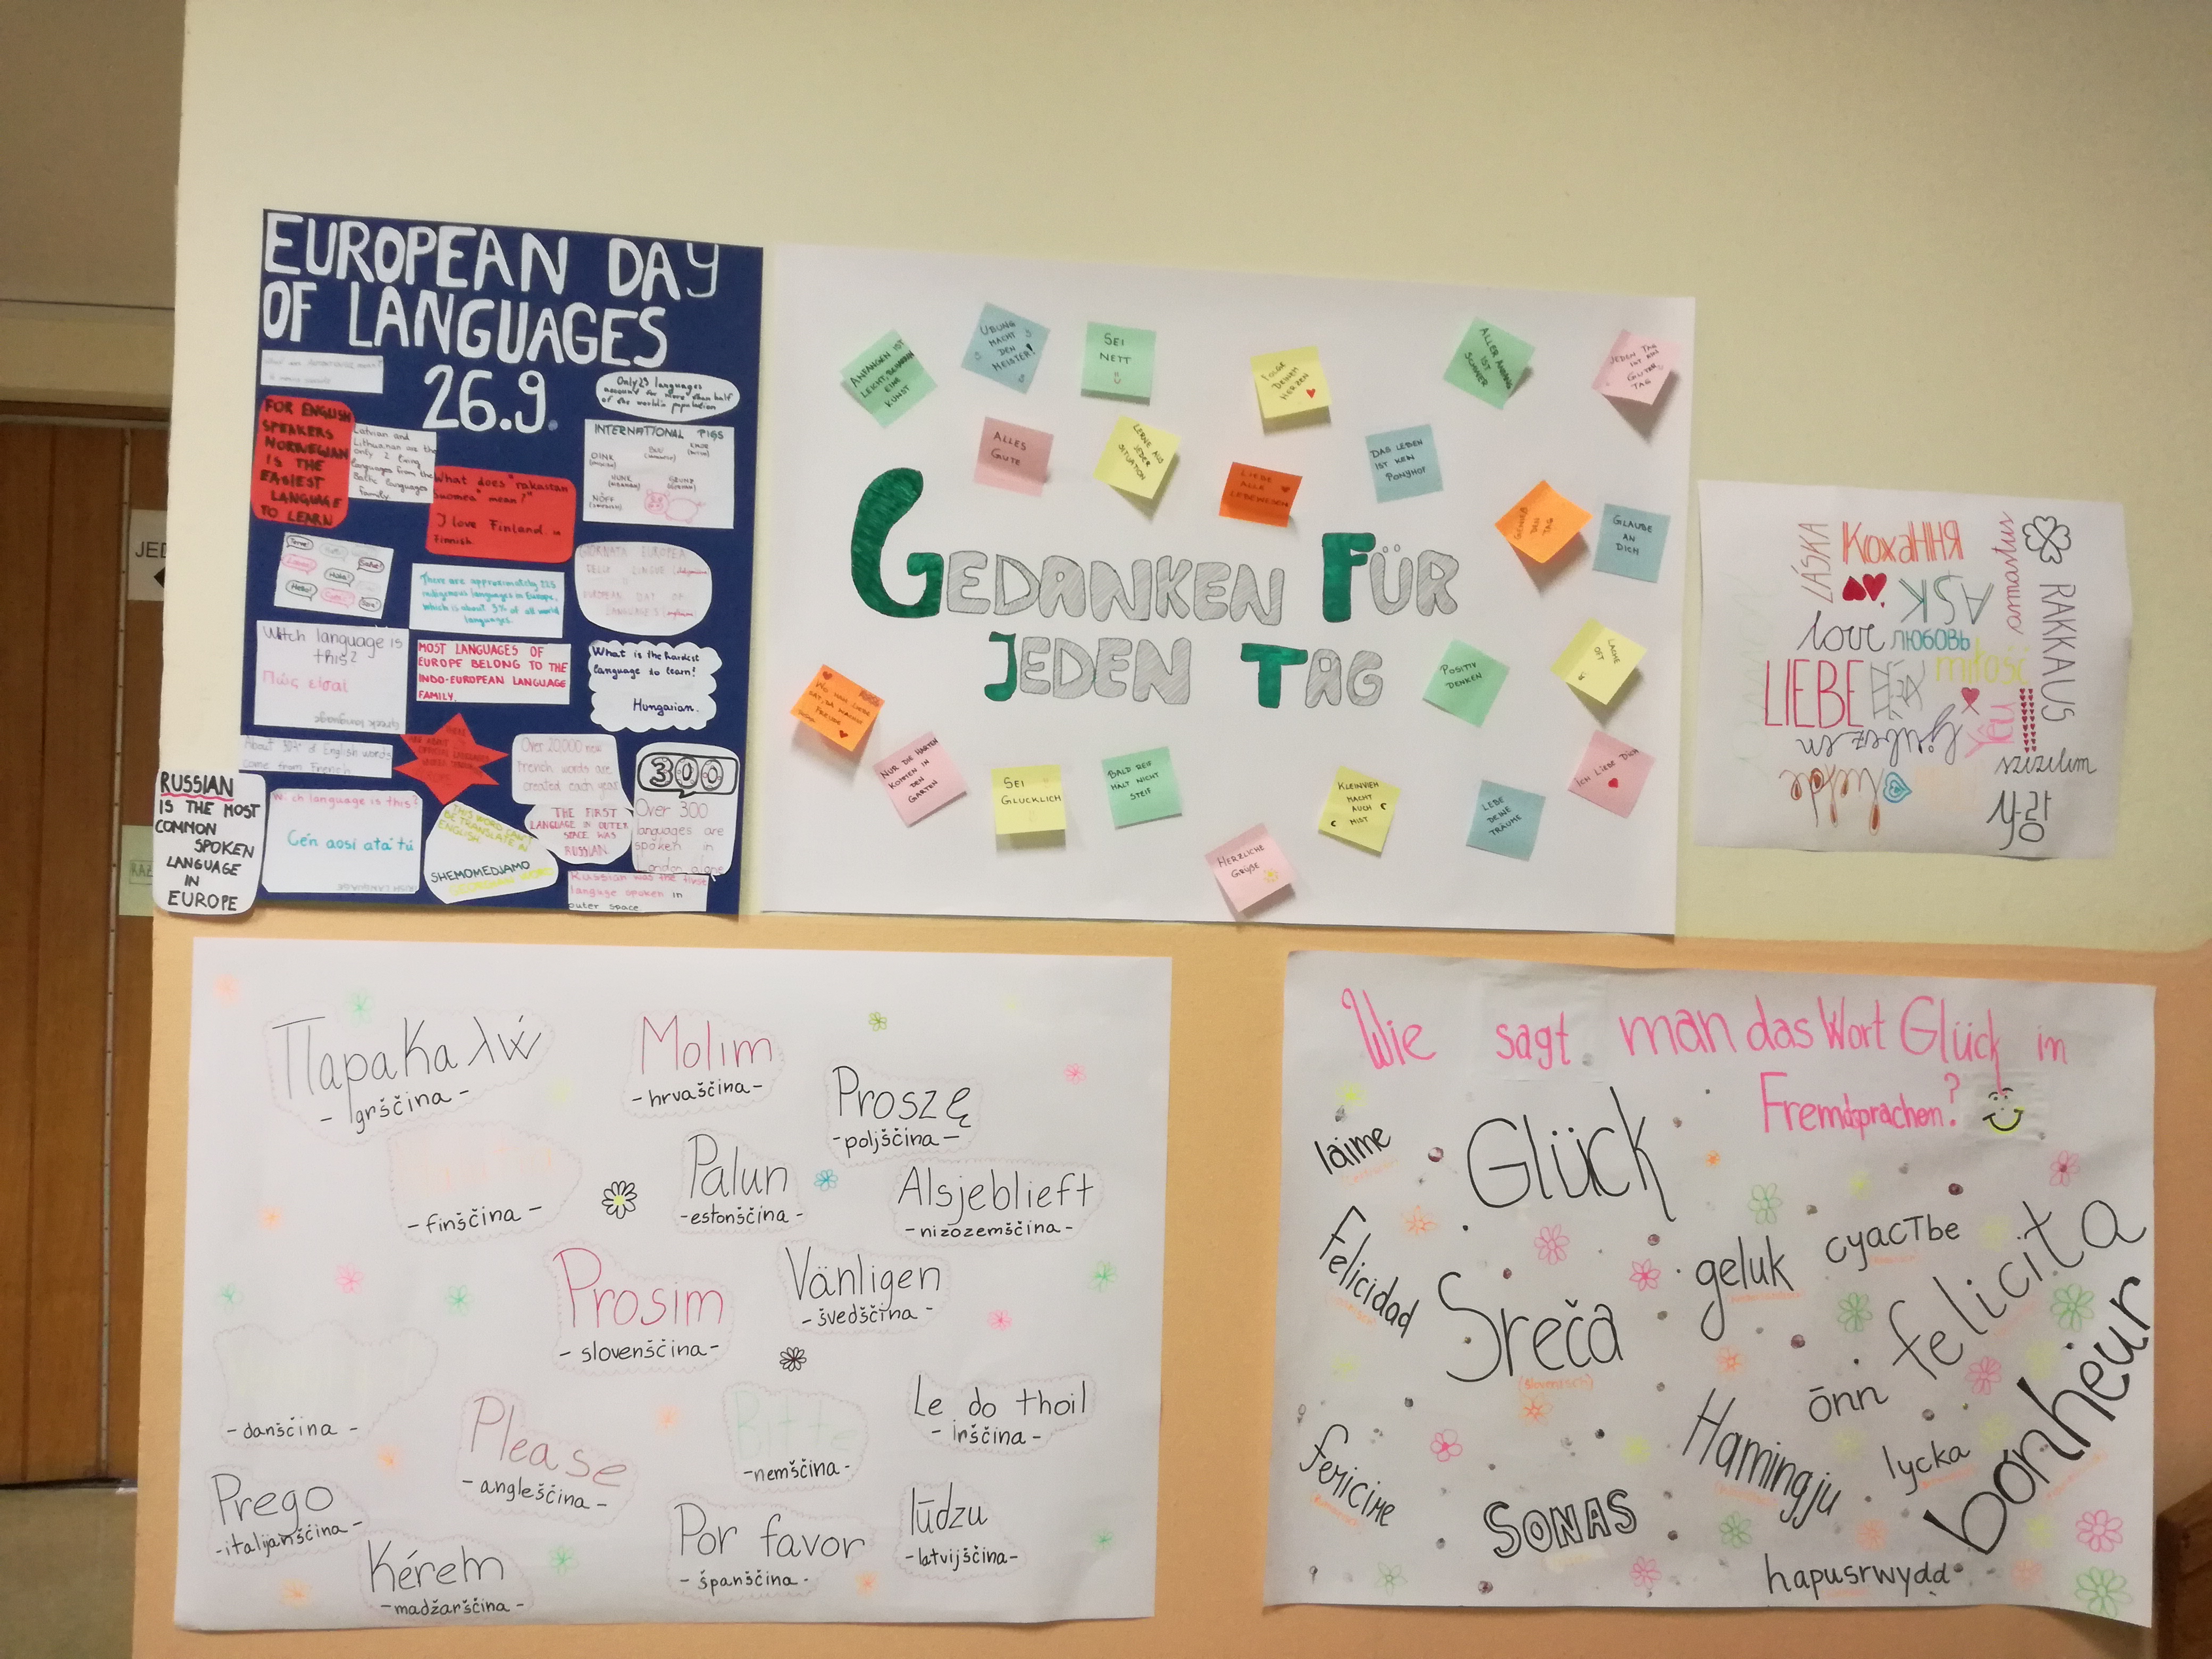 EUROPEAN DAY
OF LANGUAGES
26.9.
Only 23 languages
account for more than half
of the world's population
FOR ENGLISH
SPEAKERS
NORWEGIAN
IS THE
EASIEST
LANGUAGE
TO LEARN
Latvian and
Lithuanian are the
only 2 living
languages from the
Baltic languages
family
What does "rakastan
Suomea" mean?"
I love Finland in
Finnish
INTERNATIONAL PIGS
OINK
NÖFF
There are approximately 225
indigenous languages in Europe,
which is about 3% of all world
languages.
GIORNATA EUROPEA
DELLE LINGUE
EUROPEAN DAY OF
LANGUAGES
Hola!
Hello!
Witch language is
this?
Πώς είσαι
greek language
MOST LANGUAGES OF
EUROPE BELONG TO THE
INDO-EUROPEAN LANGUAGE
FAMILY.
What is the hardest
language to learn?
Hungarian.
About 30% of English words
come from French
Over 20,000 new
French words are
created each year
300
Over 300
languages are
spoken in
London alone
RUSSIAN
IS THE MOST
COMMON
SPOKEN
LANGUAGE
IN
EUROPE
Witch language is this?
Cén aosi atá tú
THIS WORD CAN'T
BE TRANSLATE IN
ENGLISH
SHEMOMEDJAMO
GEORGIAN WORD
THE FIRST
LANGUAGE IN OUTER
SPACE WAS
RUSSIAN.
Russian was the first
languge spoken in
outer space
GEDANKEN FÜR
JEDEN TAG
ANFANGEN IST
LEICHT, BEHARREN
EINE
KUNST
ÜBUNG
MACHT
DEN
MEISTER!
SEI
NETT
FOLGE
DEINEM
HERZEN
ALLER ANFANG
IST
SCHWER
JEDEN TAG
IST EIN
GUTER
TAG
ALLES
GUTE
LERNE AUS
JEDER
SITUATION
LIEBE
ALLE
LEBEWESEN
DAS LEBEN
IST KEIN
PONYHOF
GENIEß
DEN
TAG
GLAUBE
AN
DICH
POSITIV
DENKEN
LACHE
OFT
NUR DIE HARTEN
KOMMEN IN
DEN
GARTEN
SEI
GLÜCKLICH
BALD REIF
HÄLT NICHT
STEIF
KLEINVIEH
MACHT
AUCH
MIST
LEBE
DEINE
TRÄUME
ICH LIEBE DICH
HERZLICHE
GRÜßE
LÁSKA
Кохання
AŞK
armastus
RAKKAUS
love
любовь
LIEBE
miłość
ljubezen
szerelem
사랑
Παρακαλώ
- grščina -
Molim
- hrvaščina -
Proszę
- poljščina -
- finščina -
Palun
- estonščina -
Alsjeblieft
- nizozemščina -
Prosim
- slovenščina -
Vänligen
- švedščina -
- danščina -
Please
- angleščina -
Bitte
- nemščina -
Le do thoil
- irščina -
Prego
- italijanščina -
Kérem
- madžarščina -
Por favor
- španščina -
lūdzu
- latvijščina -
Wie sagt man das Wort Glück in
Fremdsprachen?
laime
Glück
Felicidad
Sreča
(slovenisch)
geluk
счастье
felicita
bonheur
õnn
Hamingju
lycka
fericire
SONAS
hapusrwydd